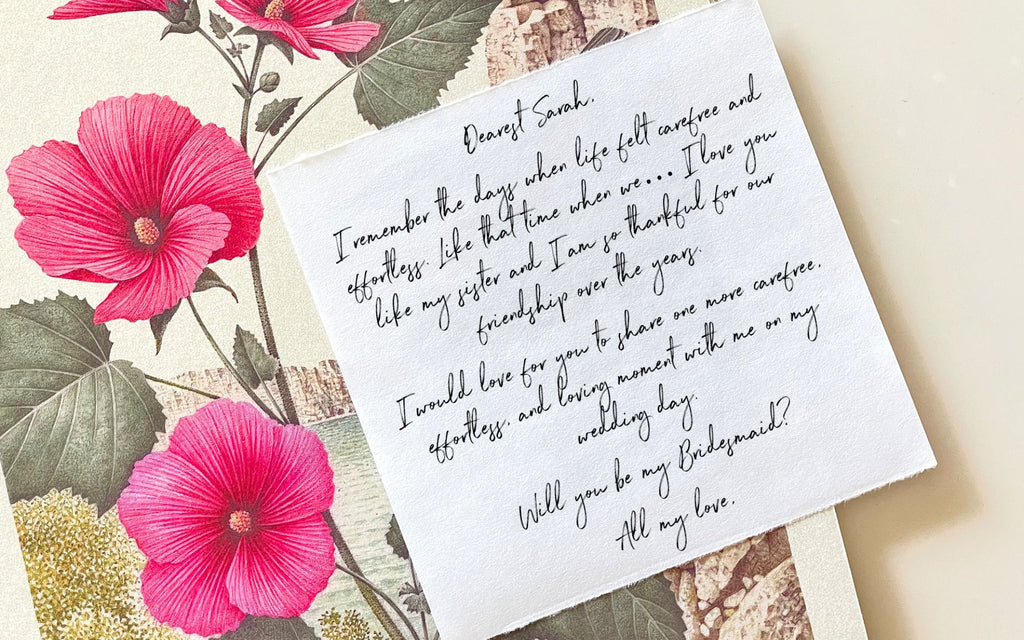 Dearest Sarah,
I remember the days when life felt carefree and
effortless. Like that time when we... I love you
like my sister and I am so thankful for our
friendship over the years.
I would love for you to share one more carefree,
effortless, and loving moment with me on my
wedding day.
Will you be my Bridesmaid?
All my love,